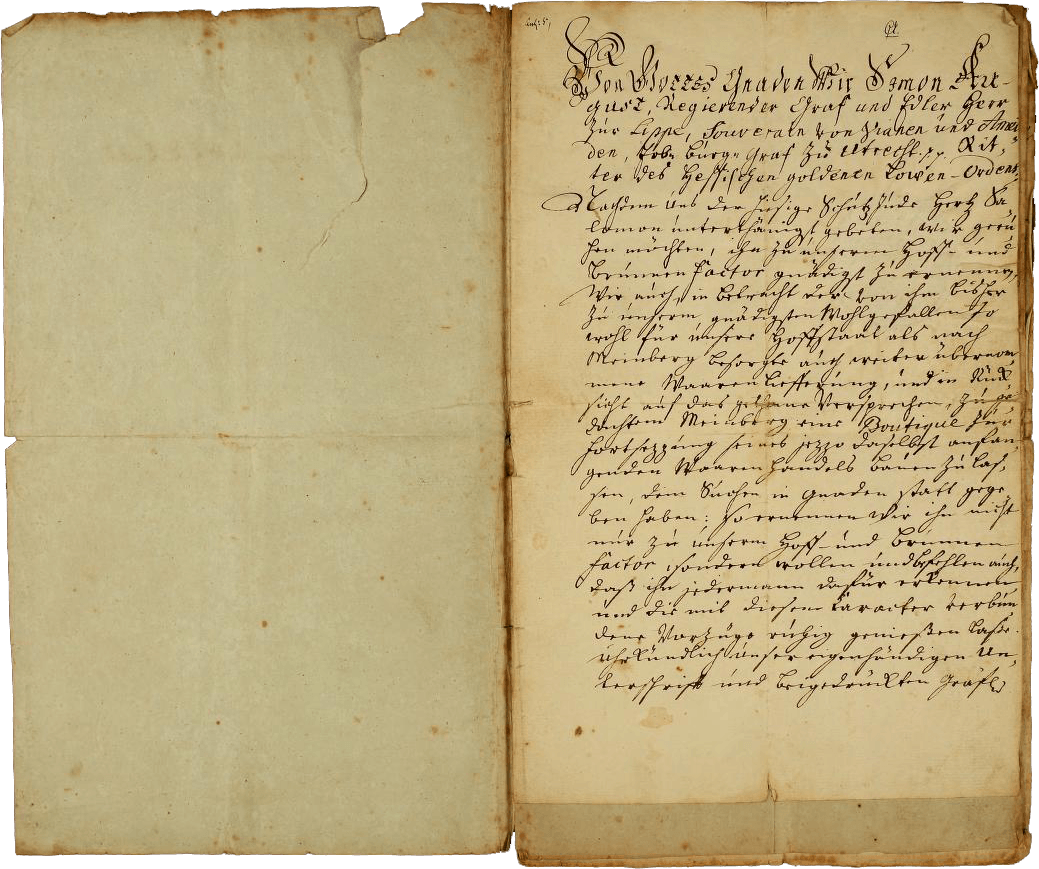 Von Gottes Gnaden Wir Simon Au-
gust, Regierender Graf und Edler Herr
zur Lippe, Souverain von Vianen und Amei-
den, Erb- Burg-Graf zu Utrecht p. p. Rit-
ter des Hessischen goldenen Löwen-Ordens,
Nachdem Uns der hiesige Schutzjude Hertz Sa-
lomon unterthänigst gebeten, wir geru-
hen möchten, ihn zu unserem Hoff- und
Brunnen Factor gnädigst zu ernennen,
Wir auch, in betracht der von ihm bisher
zu unserm gnädigsten Wohlgefallen so
wohl für unsere Hoffstaat als nach
Meinberg besorgte auch weiter übernom-
mene Waaren Liefferung, und in Rük-
sicht auf das gethane Versprechen, zu ge-
dachtem Meinberg eine Boutique zur
Fortsezzung seines jezzo daselbst anfan-
genden Waaren handels bauen zu las-
sen, dem Suchen in Gnaden statt gege-
ben haben: So ernennen Wir ihn nicht
nur zu unserm Hoff- und Brunnen
Factor, sondern wollen und befehlen auch,
daß ihn jedermann dafür erkennen
und die mit diesem Caracter verbun-
dene Vorzüge ruhig genießen lasse.
Uhrkundlich unser eigenhändigen Un-
terschrift und beigedrückten Gräfl.